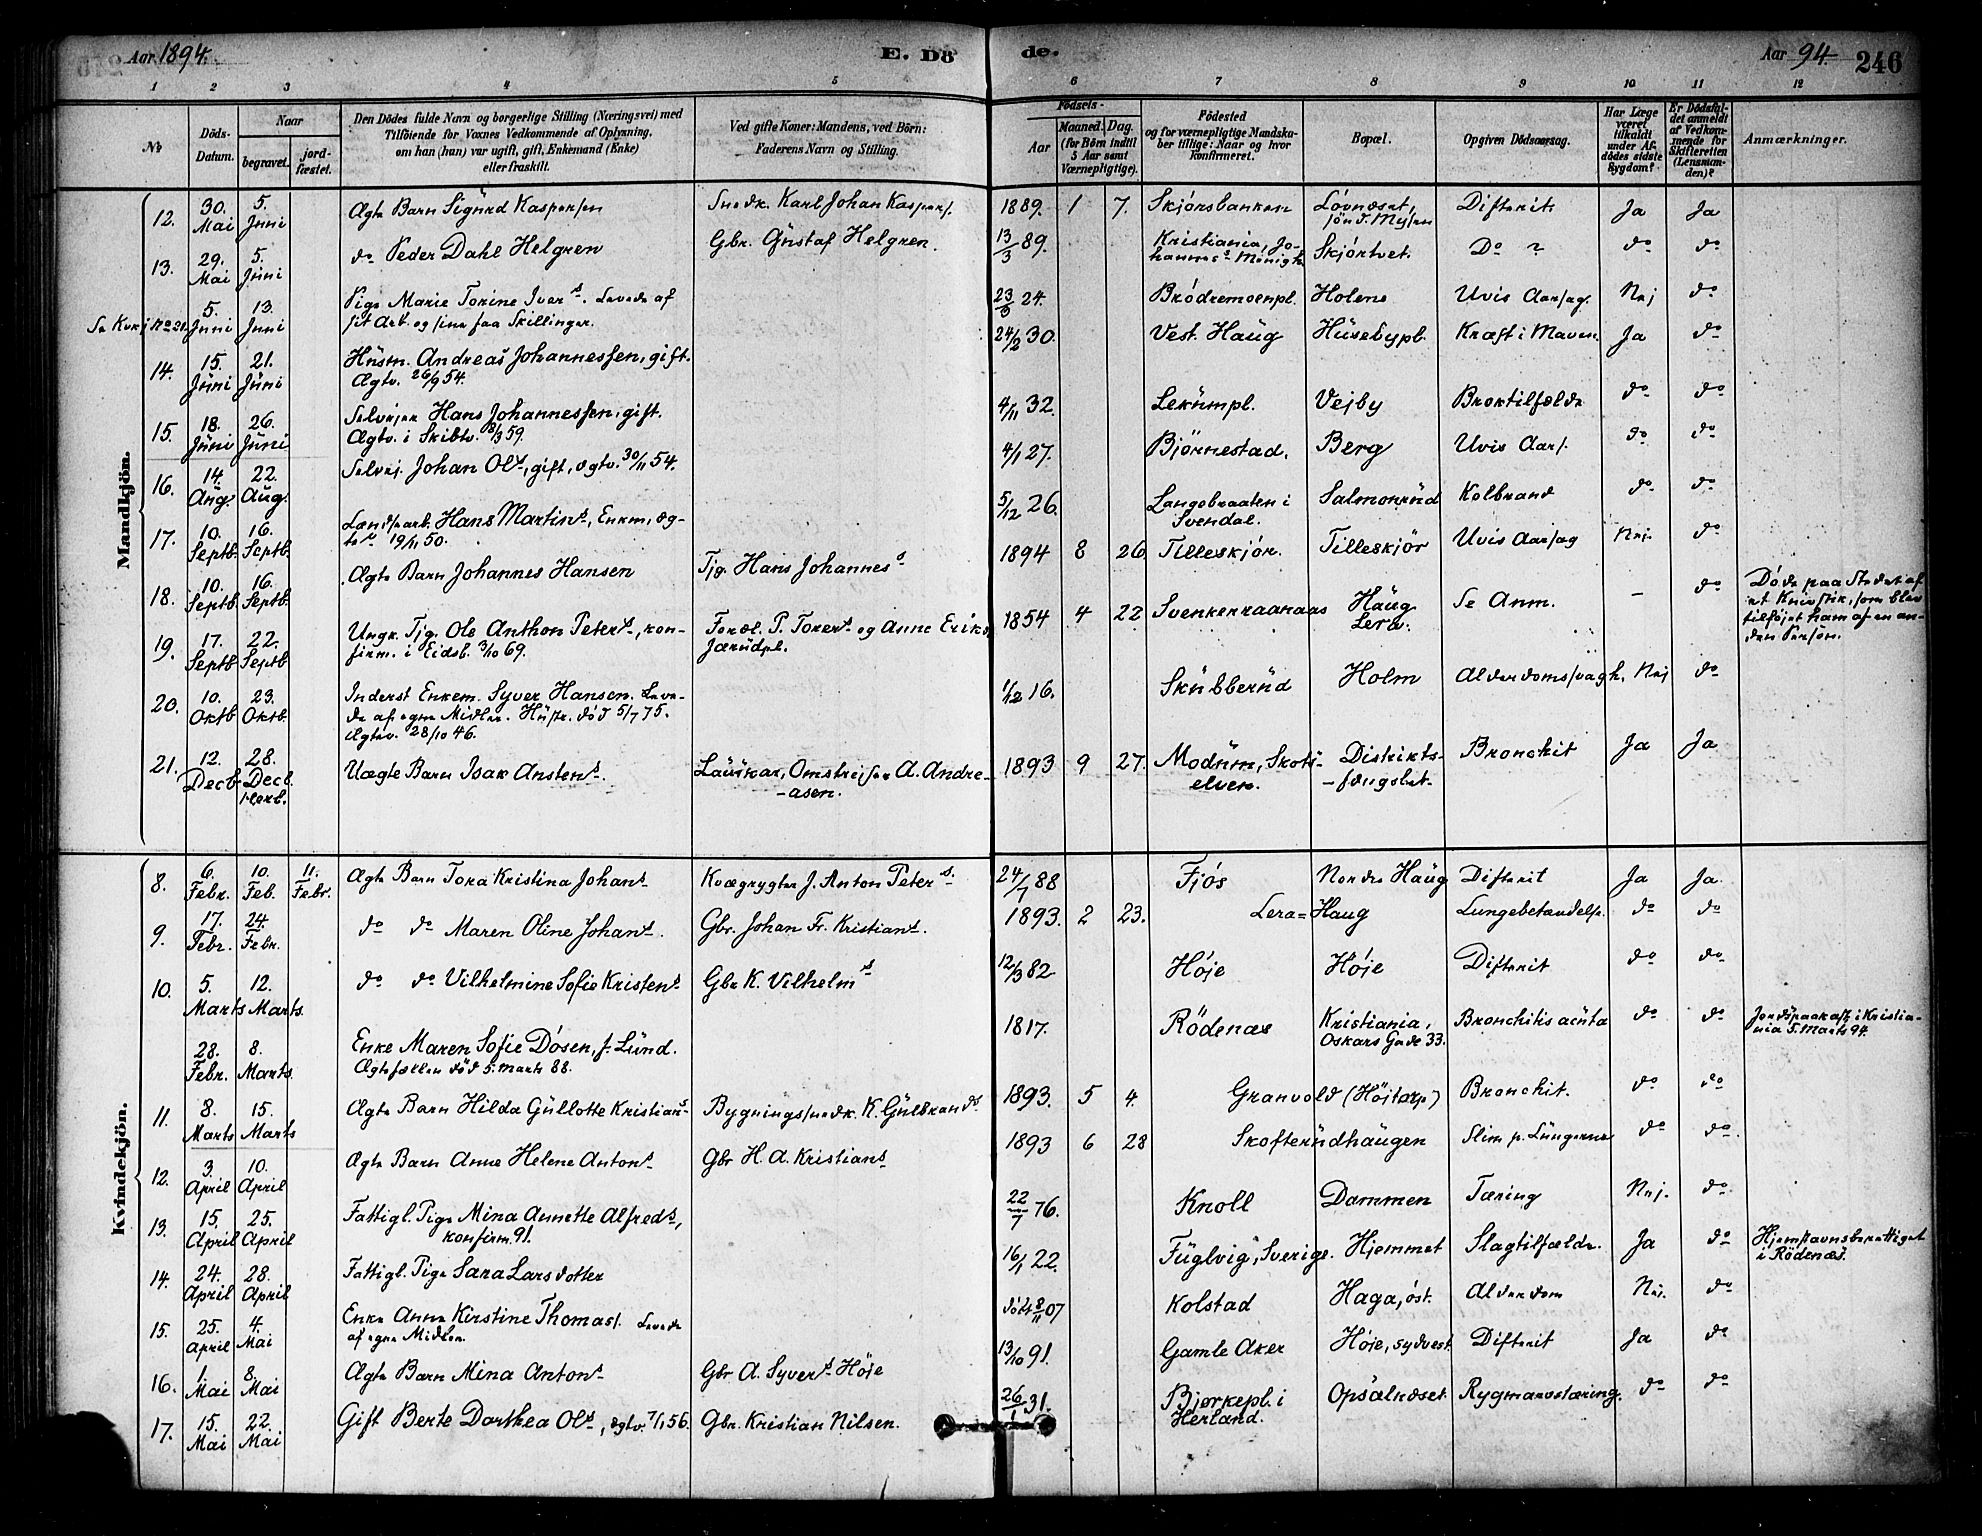 Aar 1894. E. Dö de. Aar 94. 246
1 2 3 4 5 6 7 8 9 10 11 12
№ Döds-Datum. Naar begravet. jord-fæstet. Den Dödes fulde Navn og borgerlige Stilling (Næringsvei) med Tilföiende for Voxnes Vedkommende af Oplysning, om han (hun) var ugift, gift, Enkemand (Enke) eller fraskilt. Ved gifte Koner: Mandens, ved Börn: Faderens Navn og Stilling. Födsels- Aar Maaned. Dag. (for Börn indtil 5 Aar samt Værnepligtige). Födested og for værnepligtige Mandskaber tillige: Naar og hvor konfirmeret. Bopæl. Opgiven Dödsaarsag. Har Læge været tilkaldt under Afdödes sidste Sygdom? Er Dödsfaldet anmeldt af Vedkommende for Skifteretten (Lensmanden)? Anmærkninger.
Mandkjön.
12. 30. Mai 5. Juni Ægte Barn Sigurd Kaspersen Snedk. Karl Johan Kaspers. 1889. 1 7. Skjörsbanken Lövnæset, Difterit Ja Ja
13. 29. Mai 5. Juni do Peder Dahl Helgren Gbr. Gustaf Helgren. 13/3 89. Kristiania, Johannes's Menigh. Skjörtvet. Do ? do do
Se Kvkj No 21. 5. Juni 13. Juni Pige Marie Torine Ivers. Levede af sit Arb. og sine faa Skillinger. 23/3 24. Brödremoenpl. Holene Uvis Aarsag. Nej do
14. 15. Juni 21. Juni Husm. Andreas Johannessen, gift. Ægtv. 26/9 54. 24/2 30. Vest. Haug Husebypl. Kræft i Maven. Ja do
15. 18. Juni 26. Juni Selvejer Hans Johannessen, gift. Ægtv. i Skibtv. 8/3 59. 4/11 32. Lekumpl. Vejby Broktilfælde do do
16. 14. Aug. 22. Aug. Selvej. Johan Ols, gift, ægtv. 30/11 54. 4/1 27. Bjørnestad. Berg Uvis Aars. do do
17. 10. Septb. 16. Septb. Hans Martins, Enkm, ægtv. 19/11 50. 5/12 26. Langebraaten i Svendal. Salmonrud Kolbrand do do
18. 10. Septb. 16. Septb. Ægte Barn Johannes Hansen Tjg. Hans Johannes. 1894 8 26 Tilleskjör. Tilleskjör Uvis Aarsag Nej. do
19. 17. Septb 22. Septb Ungk. Tjg. Ole Anthon Peters, konfirm. i Eidsb. 3/10 69. Foræl. P. Torers og Anne Eriks. Jærudpl. 1854 4 22 Svenkerraanaas Haug Lera. Se Anm. – do Döde paa Stedet af et Knivstik, som blev tilföjet ham af en anden Person.
20. 10. Oktb 23. Oktb. Inderst Enkem. Syver Hansen. Levede af egne Midler. Hustr. död 5/7 75. Ægtev. 28/10 46. 1/12 16. Skubberud Holm Alderdomssvagh. Nej do
21. 12. Decb 28. Decb. Uægte Barn Isak Anstens. Omstreifer A. Andreasen. 1893 9 27. Modum, Skotselven. Distriktsfængslet. Bronchit Ja Ja
Kvindekjön.
8. 6. Febr. 10. Feb. 11. Febr. Ægte Barn Tora Kristina Johans Kvægrygter J. Anton Peters. 24/7 88 Fjös Nordre Haug Difterit Ja Ja.
9. 17. Febr. 24. Febr. do do Maren Oline Johans. Gbr. Johan Fr. Kristians. 1893. 2 23. Lera=Haug Lungebetændelse. do do
10. 5. Marts 12. Marts. do do Vilhelmine Sofie Kristens Gbr. K. Vilhelms 12/3 82 Höje Höje Difterit do do
28. Febr. 8. Marts. Enke Maren Sofie Dösen, f. Lund. Ægtefællen död 5. Marts 88. 1817. Rödenæs Kristiania, Oskars Gade 33. Bronchitis acuta do do Jordspaakast. i Kristiania 5. Marts 94.
11. 8. Marts 15. Marts Ægte Barn Hilda Gullotte Kristians Bygningssnedk. K. Gulbrands. 1893. 5 4. Granvold (Höjtorp) Bronchit. do do
12. 3. April 10. April Ægte Barn Anne Helene Antons. Gbr H. A. Kristians 1893 6 28 Skofterudhaugen Slim p. Lungerne do do
13. 15. April 25. April Fattigl. Pige Mina Annette Alfreds, konfirm. 91. 22/7 76. Knoll Dammen Tæring Nej. do
14. 24. April 28. April Fattigl. Pige Sara Larsdotter 16/1 22. Fuglvig, Sverige. Hjemmet Slagtilfælde. Ja do Hjemstavnsberettiget i Rödenæs.
15. 25. April 4. Mai Enke Anne Kirstine Thomass. Levede af egne Midler. 07 Kolstad Haga, öst. Alderdom Nej. do
16. 1. Mai 8. Mai Ægte Barn Mina Antons Gbr A. Syvers Höje 13/10 91. Gamle Aker Höje, sydvest. Difterit Ja do
17. 15. Mai 22. Mai Gift Berte Dorthea Ols, ægtv. 7/1 56. Gbr. Kristian Nilsen. 26/1 31. Bjørkepl. i Herland. Opsalnæset. Rygmarvstæring. do do